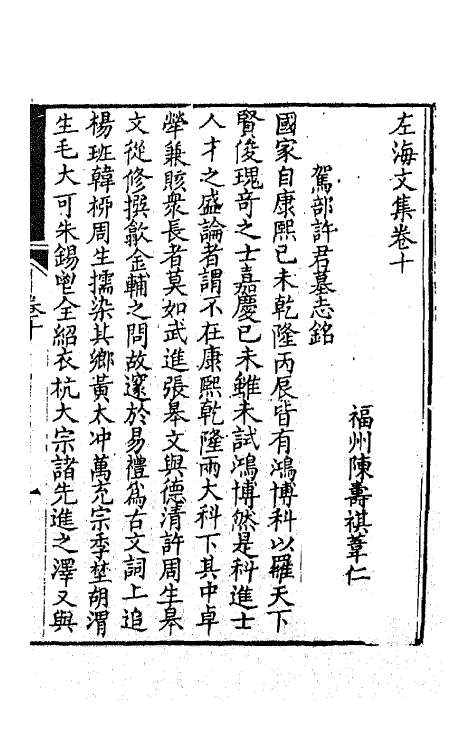 左海文集卷十
福州陳壽祺葦仁
駕部許君墓志銘
國家自康熙己未乾隆丙辰皆有鴻博科以羅天下
賢俊瑰奇之士嘉慶己未雖未試鴻博然是科進士
人才之盛論者謂不在康熙乾隆兩大科下其中卓
犖兼賅衆長者莫如武進張皋文與德清許周生皋
文從修撰歙金輔之問故邃於易禮爲古文詞上追
楊班韓柳周生擩染其鄉黃太冲萬充宗季埜胡渭
生毛大可朱錫鬯全紹衣杭大宗諸先進之澤又與
卷十
一